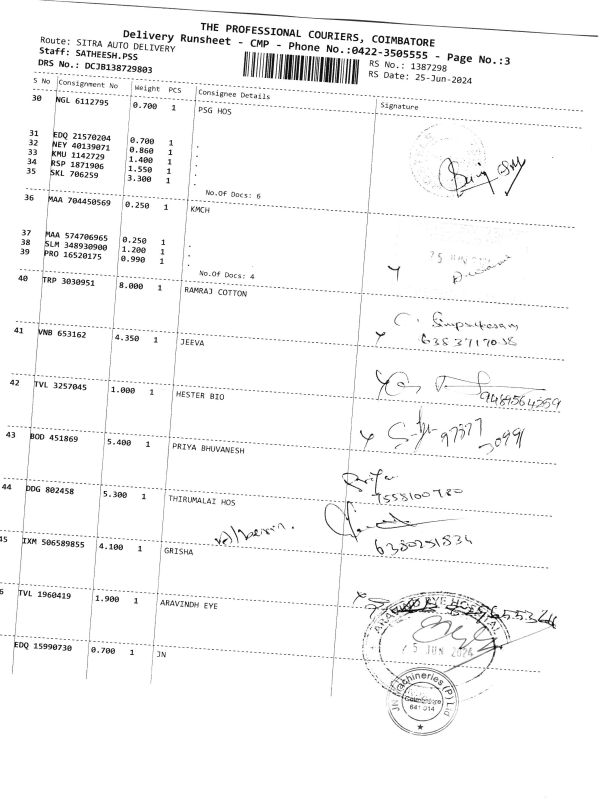 THE PROFESSIONAL COURIERS, COIMBATORE
Delivery Runsheet - CMP - Phone No.:0422-3505555 - Page No.:3
Route: SITRA AUTO DELIVERY
Staff: SATHEESH.PSS
DRS No.: DCJB138729803
RS No.: 1387298
RS Date: 25-Jun-2024
S No Consignment No Weight PCS Consignee Details Signature
30 NGL 6112795 0.700 1 PSG HOS
31 EDQ 21570204 0.700 1 .
32 NEY 40139071 0.860 1 .
33 KMU 1142729 1.400 1 .
34 RSP 1871906 1.550 1 .
35 SKL 706259 3.300 1 .
No.Of Docs: 6
36 MAA 704450569 0.250 1 KMCH
37 MAA 574706965 0.250 1 .
38 SLM 348930900 1.200 1 .
39 PRO 16520175 0.990 1 .
No.Of Docs: 4
40 TRP 3030951 8.000 1 RAMRAJ COTTON
41 VNB 653162 4.350 1 JEEVA
42 TVL 3257045 1.000 1 HESTER BIO
9489564259
43 BOD 451869 5.400 1 PRIYA BHUVANESH
Priya
7558100780
44 DDG 802458 5.300 1 THIRUMALAI HOS
6380251834
45 IXM 506589855 4.100 1 GRISHA
6 TVL 1960419 1.900 1 ARAVINDH EYE
EDQ 15990730 0.700 1 JN
JUN 2024
JN Machineries (P) Ltd
Coimbatore
641 014